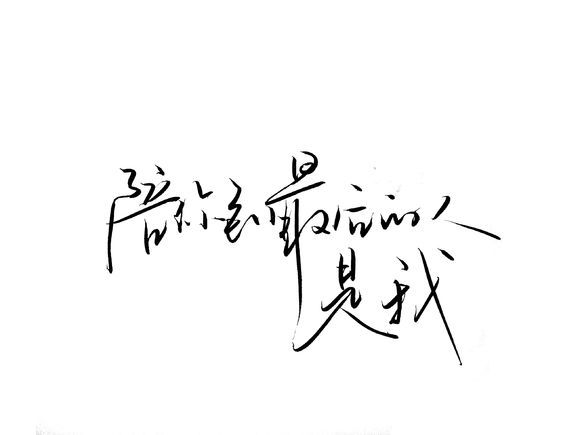 陪你到最后的人
是我